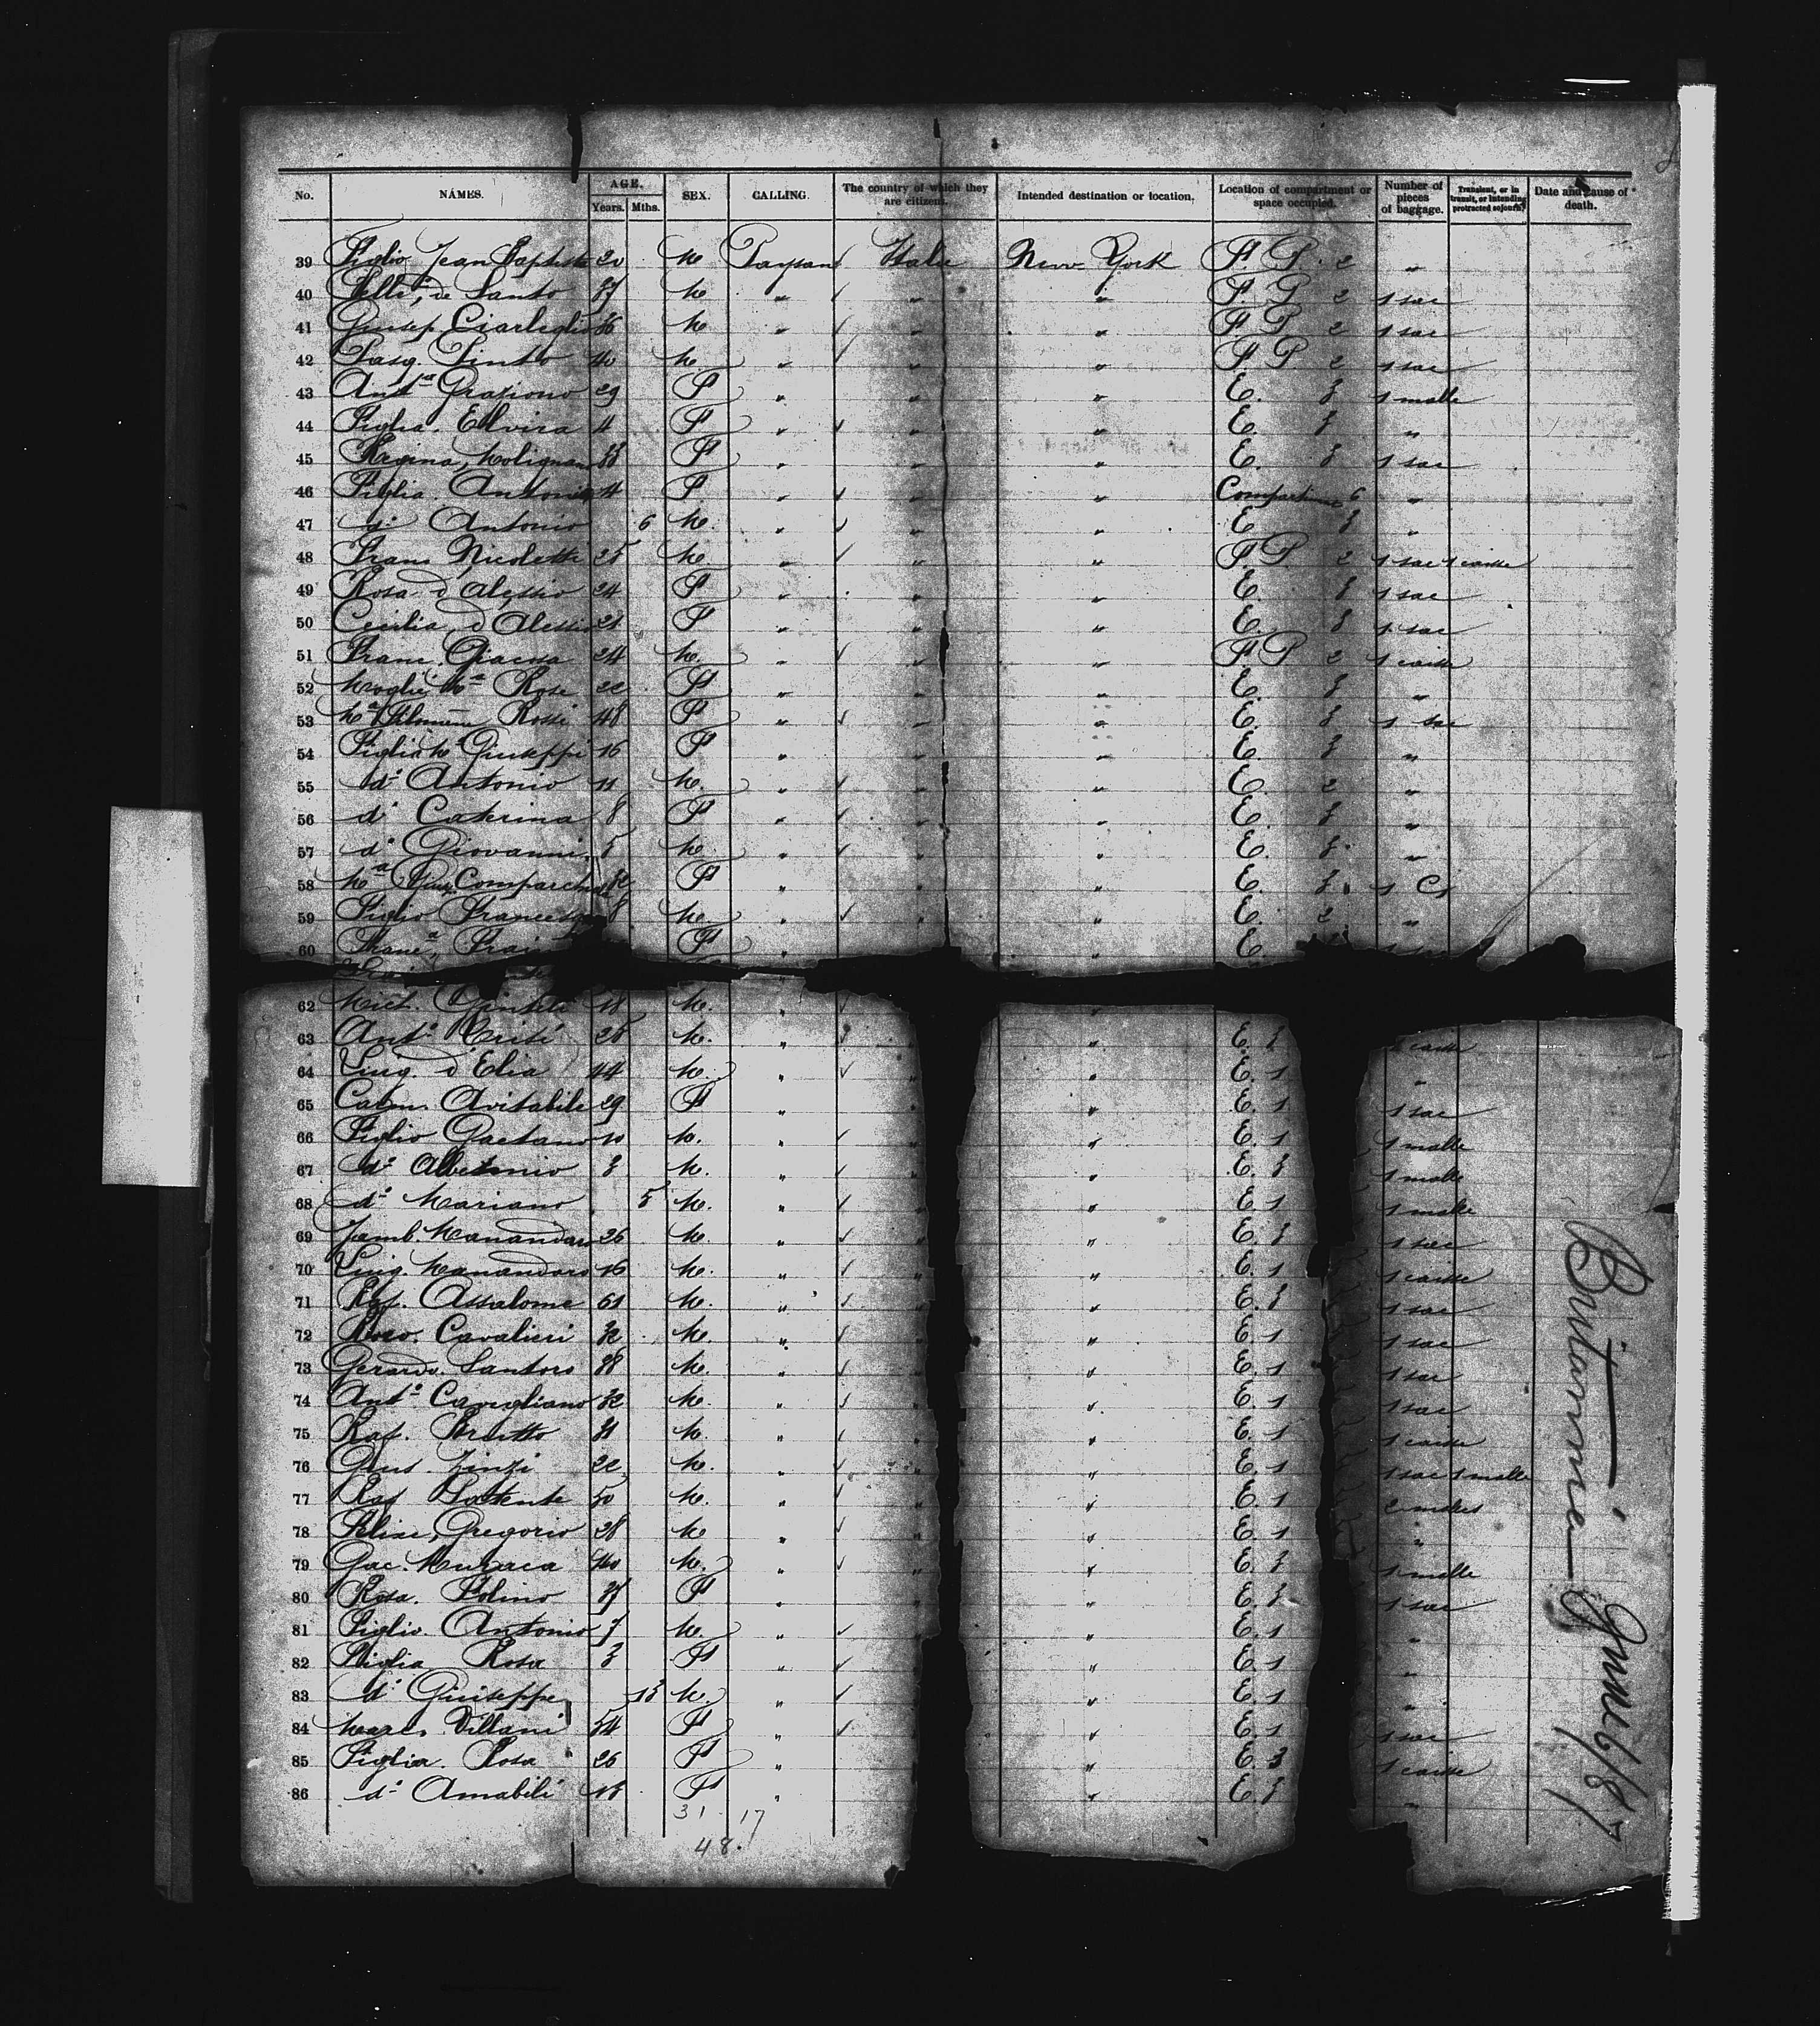 No. NAMES. AGE. Years. Mths. SEX. CALLING. The country of which they are citizens. Intended destination or location. Location of compartment or space occupied. Number of pieces of baggage. Transient, or in transit, or intending protracted sojourn. Date and cause of death.
39 Figlio Jean Baptiste 20 M Paysans Italie New York F P. 2 "
40 de Santo 37 M " " " F P 2 1 sac
41 Giusep. Ciarleglio 36 M " " " F P 2 1 sac
42 Pasq. Pinto 40 M " " " F P. 2 1 sac
43 Antª Graziono 29 F " " " E. 3 1 malle
44 Figlia. Elvira 4 F " " " E. 3 "
45 Regina, Molignano 33 F " " " E. 3 1 sac
46 Figlia. Antonia 4 F " " " Compartim 6 "
47 dº Antonio 6 M. " " " E 3 "
48 Franc Nicoletti 25 M " " " F P. 2 1 sac 1 caisse
49 Rosa d'Alessio 24 F " " " E. 3 1 sac
50 Cecilia d'Alessio 21 F " " " E. 3 1 sac
51 Franc. Giacosa 24 M. " " " F P 2 1 caisse
52 Moglie, Mª Rose 22 F " " " E. 3 "
53 Mª Filomena Rossi 48 F " " " E. 3 1 sac
54 Figlia Mª Giuseppi 16 F " " " E. 3 "
55 dº Antonio 11 M. " " " E 2 "
56 dº Caterina 8 F " " " E 3 "
57 dº Giovanni 5 M. " " " E. 3 "
58 Mª Giu. 32 F " " " E. 3 1 Cs
59 Figlio Francesco 8 M. " " " E. 2 "
60 Francª F " " " E.
62 Mich. 18 M. " "
63 Antº Crisi 25 M. " " E. 3 caisse
64 Luig. d'Elia 44 M. " " " E. 1 "
65 Carm. Avitabile 29 F " " " E. 1 1 sac
66 Figlio Gaetano 10 M. " " " E. 1 1 malle
67 dº 3 M. " " " E 3 1 malle
68 dº Mariano 5 M. " " " E 1 1 malle
69 Manandaro 26 M. " " " E 3 1 sac
70 Luig. Manandaro 16 M. " " " E. 1 1 caisse
71 Raf. Assalome 61 M. " " " E. 3 1 sac
72 Roco. Cavalieri 32 M. " " " E 1 1 sac
73 Gerardo. Santoro 38 M. " " " E. 1 1 sac
74 Antº Cavigliano 32 M. " " " E. 1 1 sac
75 Raf. Brutto 31 M. " " " E. 1 1 caisse
76 Gius. Zinzi 22 M. " " " E. 1 1 sac 1 malle
77 Raf 50 M. " " " E 1 2 malles
78 Felice, Gregorio 28 M " " " E. 1 "
79 Gae. Muraca 40 M. " " " E. 3 1 malle
80 Rosa. Folino 37 F " " " E. 3 1 sac
81 Figlio. Antonio 7 M. " " " E. 1 "
82 Figlia Rosa 3 F " " " E 1 "
83 dº Giuseppe 13 M. " " " E 1 "
84 Marco. Villani 54 F " " " E 1 1 sac
85 Figlia. Rosa 26 F " " " E. 3 1 caisse
86 dº Amabili 18 F " " E 3 "
31 17
48.
Britannia June 6/87